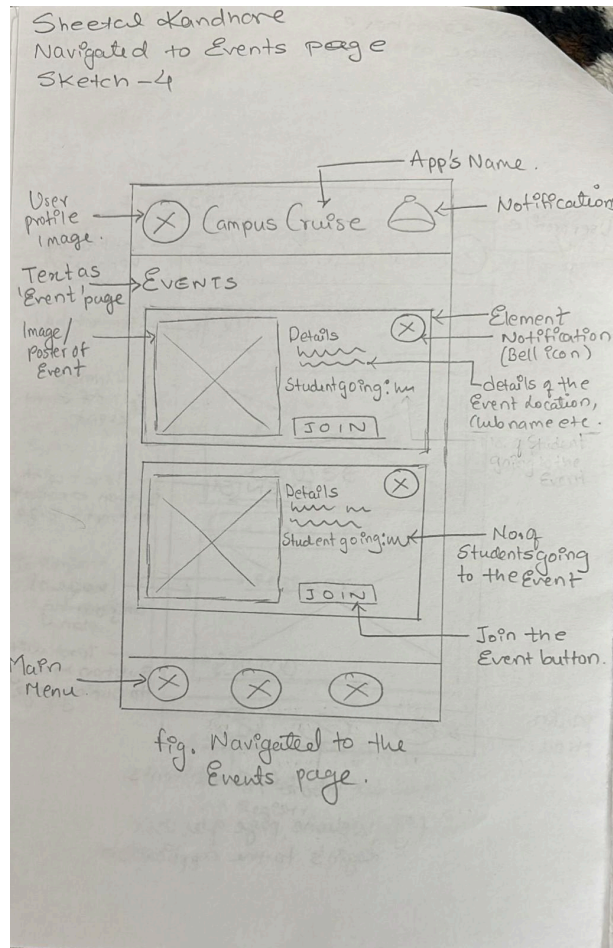 Sheetal Kandhare
Navigated to Events page
Sketch - 4
App's Name.
User
profile
image.
Campus Cruise
Notification
Text as
'Event' page
EVENTS
Image/
Poster of
Event
Details
Student going:
JOIN
Element
Notification
(Bell icon)
details of the
Event Location,
Club name etc.
Details
Student going:
JOIN
No. of
Students going
to the Event
Join the
Event button.
Main
Menu
fig. Navigated to the
Events page.